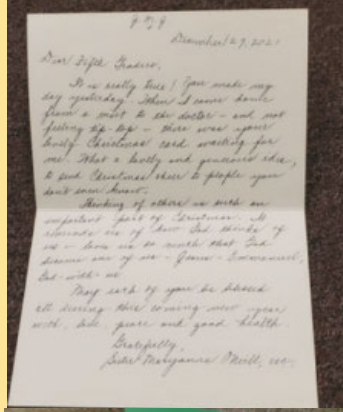 J.M.J
December 29, 2021
Dear Fifth Graders,
It is really true! You made my
day yesterday. When I came home
from a visit to the doctor - and not
feeling tip-top - there was your
lovely Christmas card waiting for
me. What a lovely and generous idea,
to send Christmas cheer to people you
don't even know.
Thinking of others is such an
important part of Christmas. It
reminds us of how God thinks of
us - loves us so much that God
became one of us - Jesus - Emmanuel,
God-with-us
May each of you be blessed
all during this coming new year
with love, peace and good health.
Gratefully,
Sister Maryanne O'Neill,